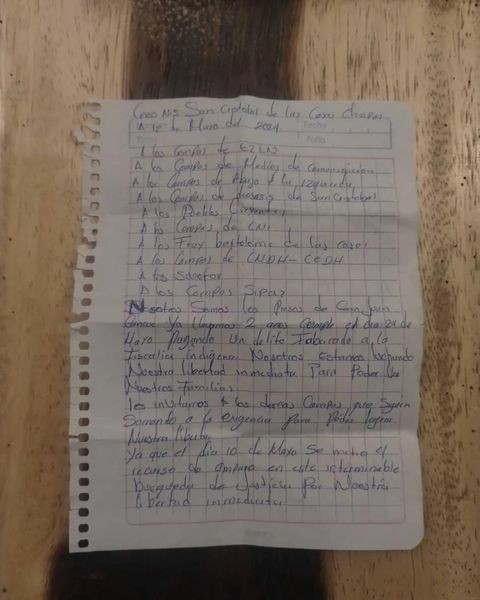 Cereso No5 San Cristobal de las Casas Chiapas
A 12 de Mayo del 2024
Fecha
Folio
A los Compas de EZLN
A los Compas de Medios de Comunicación
A los Compas de Abajo a la izquierda
A los Compas de diosesis de San Cristobal
A los Pueblos Creyentes
A los Compas de CNI
A los Fray bartolome de las casas
A los Compas de CNDH - CEDH
A los
A los Compas Sipaz
Nosotros Somos los Presos de San Juan
Cancuc Ya llevamos 2 años Cumple el día 29 de
Mayo Pagando Un delito Fabricado a la
Fiscalia Indigena Nosotros Estamos
Nuestra libertad inmediata Para Poder Ver
Nuestros Familias
les invitamos A los demas Compas que Siguen
Sumando a la exigencia Para Poder lograr
Nuestra libertad
Ya que el día 10 de Mayo Se metio el
recurso de amparo en esta interminable
busqueda de Justicia Por Nuestra
libertad inmediata